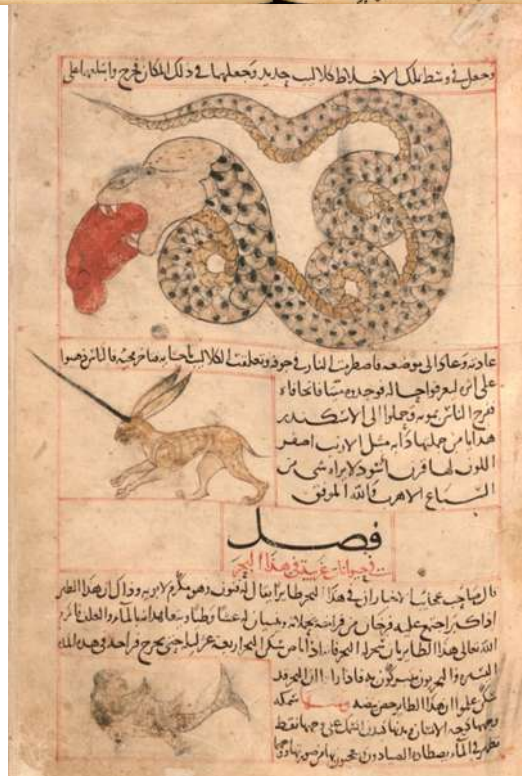 وجعل في وسط تلك الاخلاط كلاليب حديد وجعلها في ذلك المكان فخرج وابتلعها على
عادته وعاد الى موضعه فاضطرمت النار في جوفه وتعلقت الكلاليب باحشايه فاخر ... الناس ذهبوا
على اثره ليعرفوا حاله فوجدوه ميتا فاتحا فاه
ففرح الناس بموته وحملوا الى الاسكندر
هدايا من جملتها دابة مثل الارنب اصفر
اللون لها قرن اسود لا يراه شي من
السباع الا هرب والله الموفق
فصل
في حيوانات غريبة في هذا البحر
قال صاحب عجايب الاخبار ان في هذا البحر طايرا يقال له ... وهو مكرم لابويه وذاك ان هذا الطير
اذا كبر اجتمع عليه فرخان من فراخه يحملانه ويبنيان له عشا وطيا ويتعاهدانه بالماء والعلف
الله تعالى هذا الطاير بان سخر له البحر فانه اذا باض سكن البحر اربعة عشر ليلة حتى يخرج فراخه في هذه المدة
اليسيرة والبحريون يتبركون به فاذا راوا ان البحر قد
سكن علموا ان هذا الطاير حضن بيضه ومنها سمكة
وجهها كوجه الانسان وبدنها كبدن السمك على وجهها نقط
تظهر في الماء